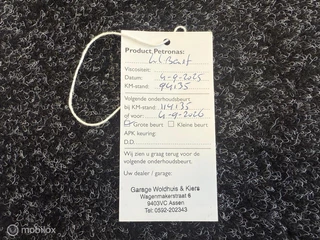 Product Petronas:
Viscositeit:
Datum: 4-9-2025
KM-stand: 94135
Volgende onderhoudsbeurt
bij KM-stand: 114135
of voor: 4-9-2026
Grote beurt Kleine beurt
APK keuring:
D.D
Wij zien u graag terug voor de
volgende onderhoudsbeurt.
Uw dealer / garage:
Garage Woldhuis & Kiers
Wagenmakerstraat 6
9403VC Assen
Tel: 0592-202343
Marktplaats